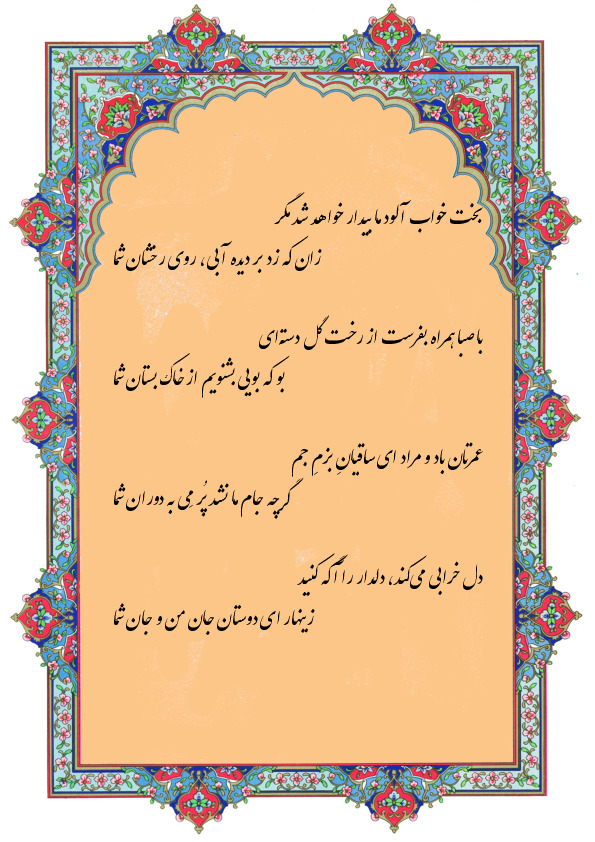 بخت خواب آلود ما بیدار خواهد شد مگر
زان که زد بر دیده آبی، روی رخشان شما
با صبا همراه بفرست از رخت گل دسته‌ای
بو که بویی بشنویم از خاک بستان شما
عمرتان باد و مراد ای ساقیانِ بزمِ جم
گرچه جام ما نشد پُر مِی به دوران شما
دل خرابی می‌کند، دلدار را آگه کنید
زینهار ای دوستان جان من و جان شما